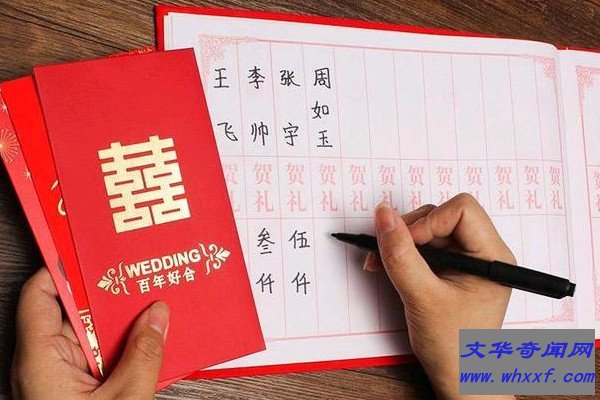 囍
WEDDING
百年好合
周如玉
张宇
李帅
王飞
贺礼
贺礼
贺礼
贺礼
贺礼
贺礼
贺礼
贺礼
贺礼
贺礼
贺礼
伍仟
叁仟
文华奇闻网
www.whxxf.com